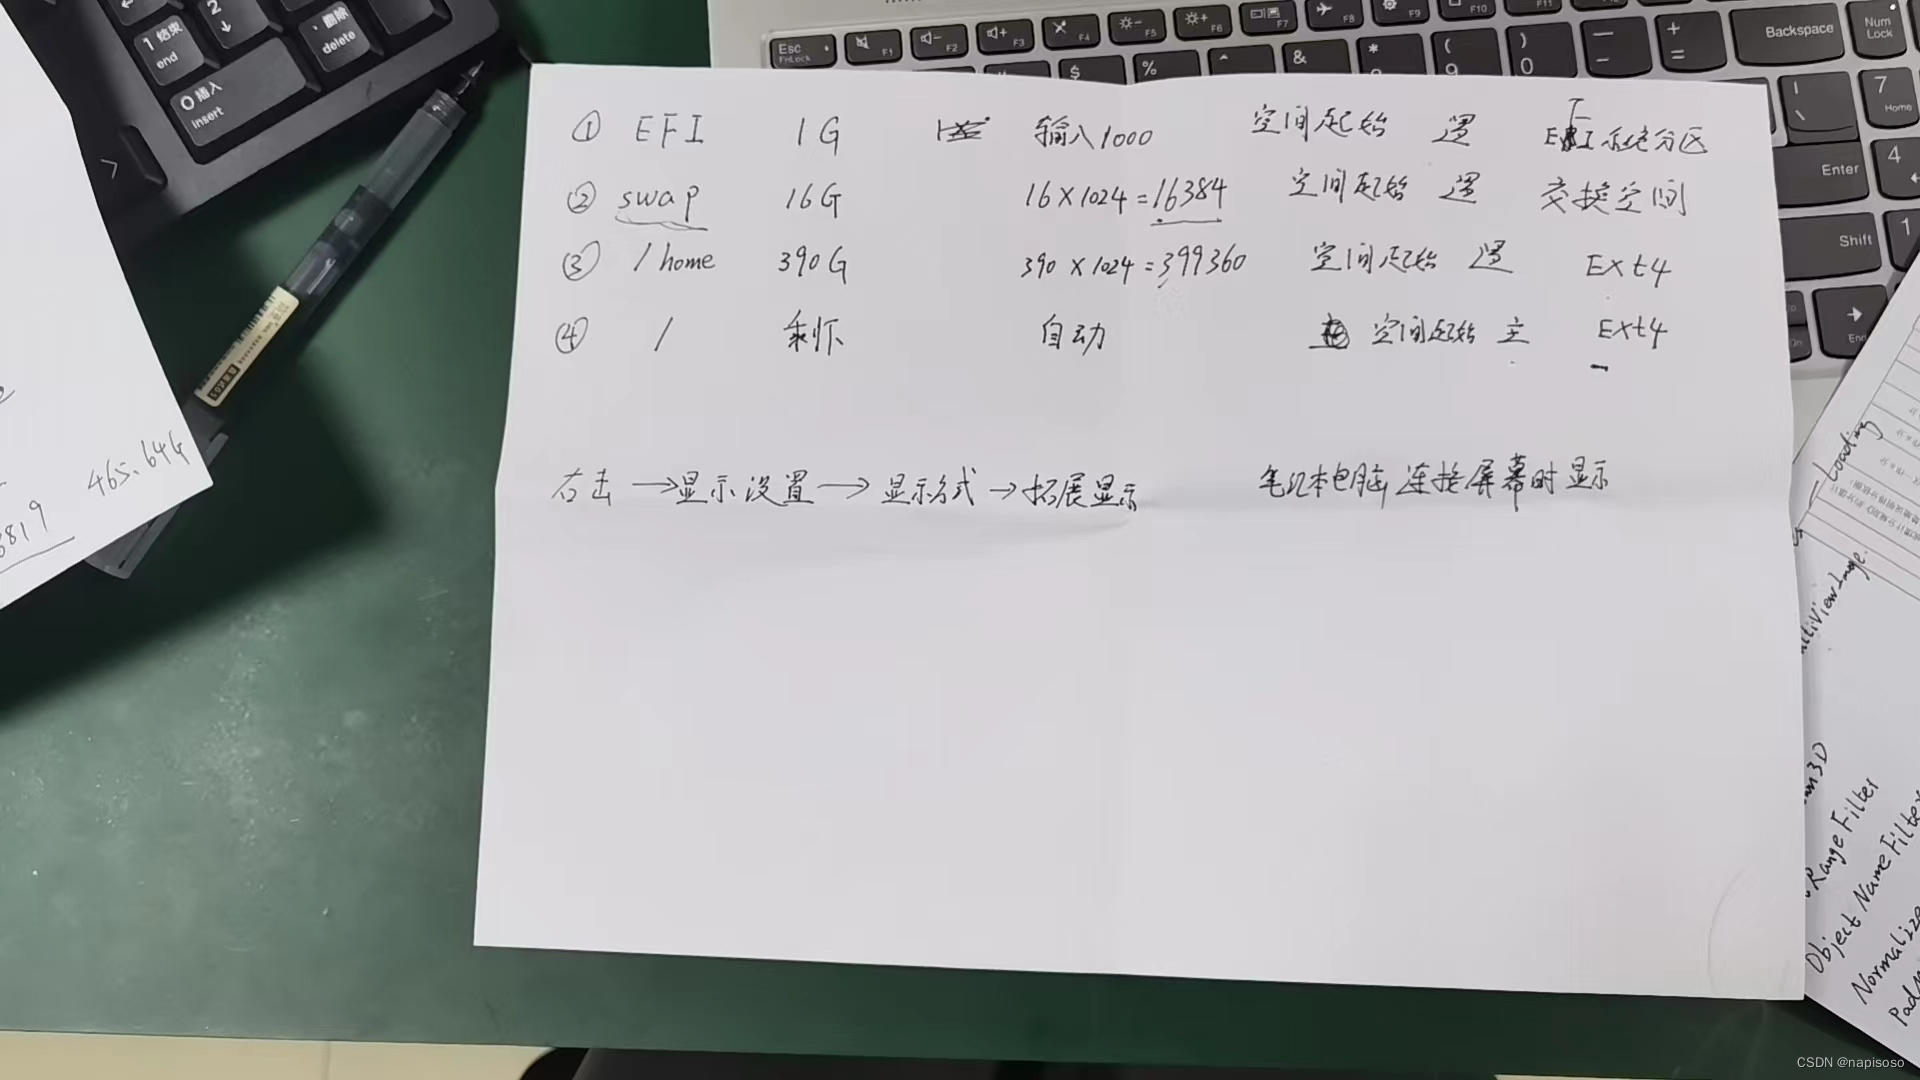 ① EFI 1G 输入1000 空间起始 逻 EFI系统分区
② swap 16G 16×1024=16384 空间起始 逻 交换空间
③ /home 390G 390×1024=399360 空间起始 逻 Ext4
④ / 剩下 自动 空间起始 主 Ext4
右击→显示设置→显示方式→拓展显示 笔记本电脑连接屏幕时显示
465.64G
8819
1 结束 end
2
删除 delete
0 插入 insert
Esc FnLock F1 F2 F3 F4 F5 F6 F7 F8 F9 F10 F11
$ % ^ & * ( 9 ) 0 — - + =
Backspace
Num Lock
7 Home
Enter
4
Shift
1
End
Loading
Range Filter
Object Name Filter
Normalize
CSDN @napisoso